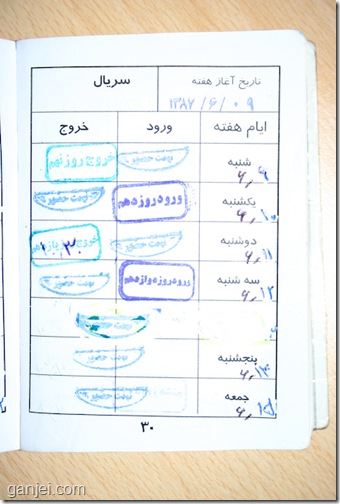 تاریخ آغاز هفته سریال
۱۳۸۷/۶/۰۹
ایام هفته ورود خروج
شنبه نوبت حضور خروج روز نهم
۶٫۹
یکشنبه ورود روز دهم نوبت حضور
۶٫۱۰
دوشنبه نوبت حضور خروج روز یازدهم ۱۰:۳۰
۶٫۱۱
سه شنبه ورود روز دوازدهم نوبت حضور
۶٫۱۲
نوبت حضور
پنجشنبه نوبت حضور
جمعه نوبت حضور
۶٫۱۵
۳۰
ganjei.com